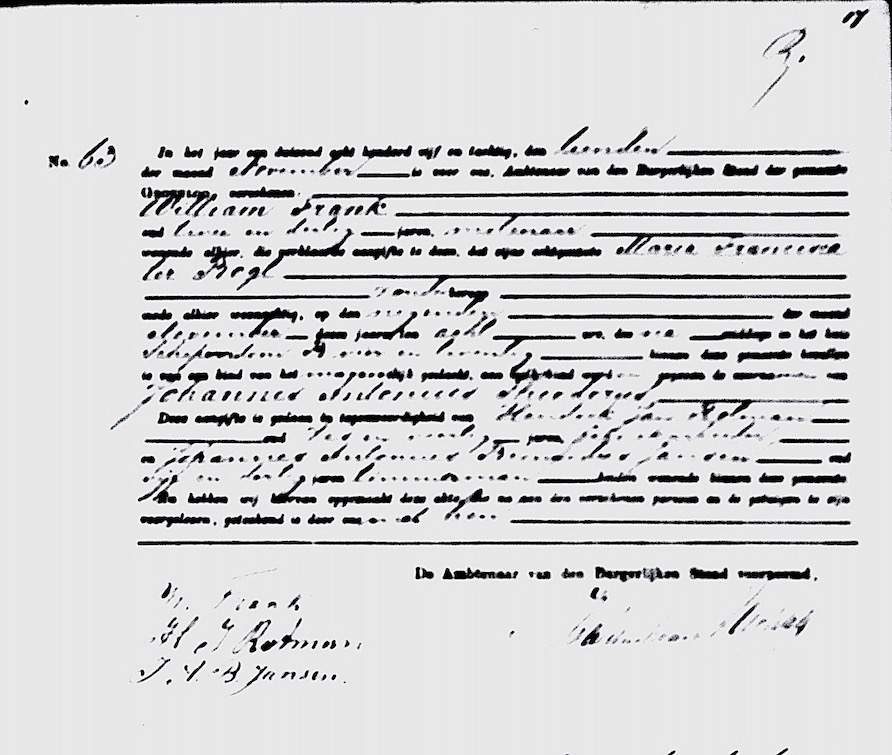 17
No 63
In het jaar een duizend acht honderd vijf en tachtig, den tienden
der maand November is voor ons, Ambtenaar van den Burgerlijken Stand der gemeente
verschenen
William Frank
oud twee en dertig jaren, metselaar
wonende alhier, die verklaarde aangifte te doen, dat zijne echtgenoote Maria Francisca
ter Rogl
zonder beroep
mede alhier woonachtig, op den negenden der maand
November dezes jaars, ten acht ure, des na middags in het huis
vier en twintig binnen deze gemeente bevallen
is van een kind van het mannelijk geslacht, aan hetwelk gegeven de voornamen van
Johannes Antonius Theodorus
Deze aangifte is gedaan in tegenwoordigheid van Hendrik Jan Rotman
oud jaren,
en Johannes Antonius Jansen oud
vijf en dertig jaren timmerman beiden wonende binnen deze gemeente.
En hebben wij hiervan opgemaakt deze akte, die na aan den verschenen persoon en de getuigen te zijn
voorgelezen, geteekend is door ons en hen
De Ambtenaar van den Burgerlijken Stand voornoemd,
W. Frank
H J Rotman
J. A. B. Jansen.